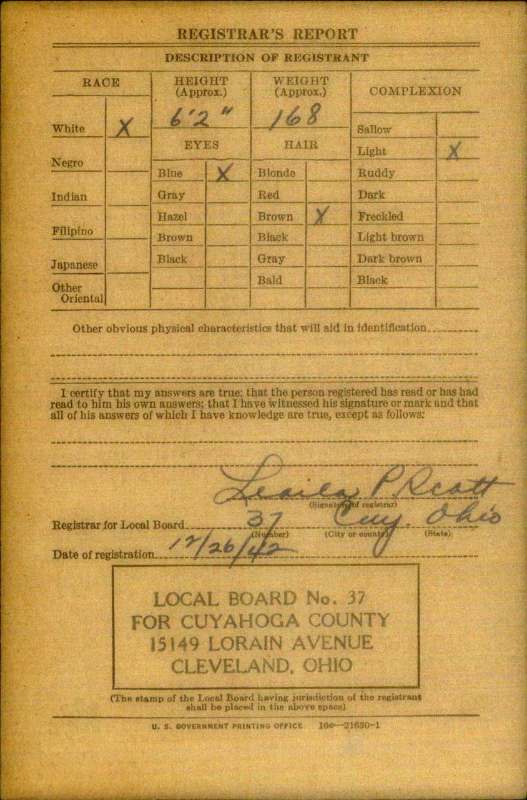 REGISTRAR'S REPORT
DESCRIPTION OF REGISTRANT
RACE
HEIGHT (Approx.)
WEIGHT (Approx.)
COMPLEXION
6'2"
168
White X
Sallow
EYES
HAIR
Light X
Negro
Blue X
Blonde
Ruddy
Indian
Gray
Red
Dark
Hazel
Brown X
Freckled
Filipino
Brown
Black
Light brown
Japanese
Black
Gray
Dark brown
Other Oriental
Bald
Black
Other obvious physical characteristics that will aid in identification
I certify that my answers are true; that the person registered has read or has had
read to him his own answers; that I have witnessed his signature or mark and that
all of his answers of which I have knowledge are true, except as follows:
P Scott
(Signature of registrar)
Registrar for Local Board 37 Cuy. Ohio
(Number) (City or county) (State)
Date of registration 12/26/42
LOCAL BOARD No. 37
FOR CUYAHOGA COUNTY
15149 LORAIN AVENUE
CLEVELAND, OHIO
(The stamp of the Local Board having jurisdiction of the registrant
shall be placed in the above space)
U. S. GOVERNMENT PRINTING OFFICE 16—21630-1